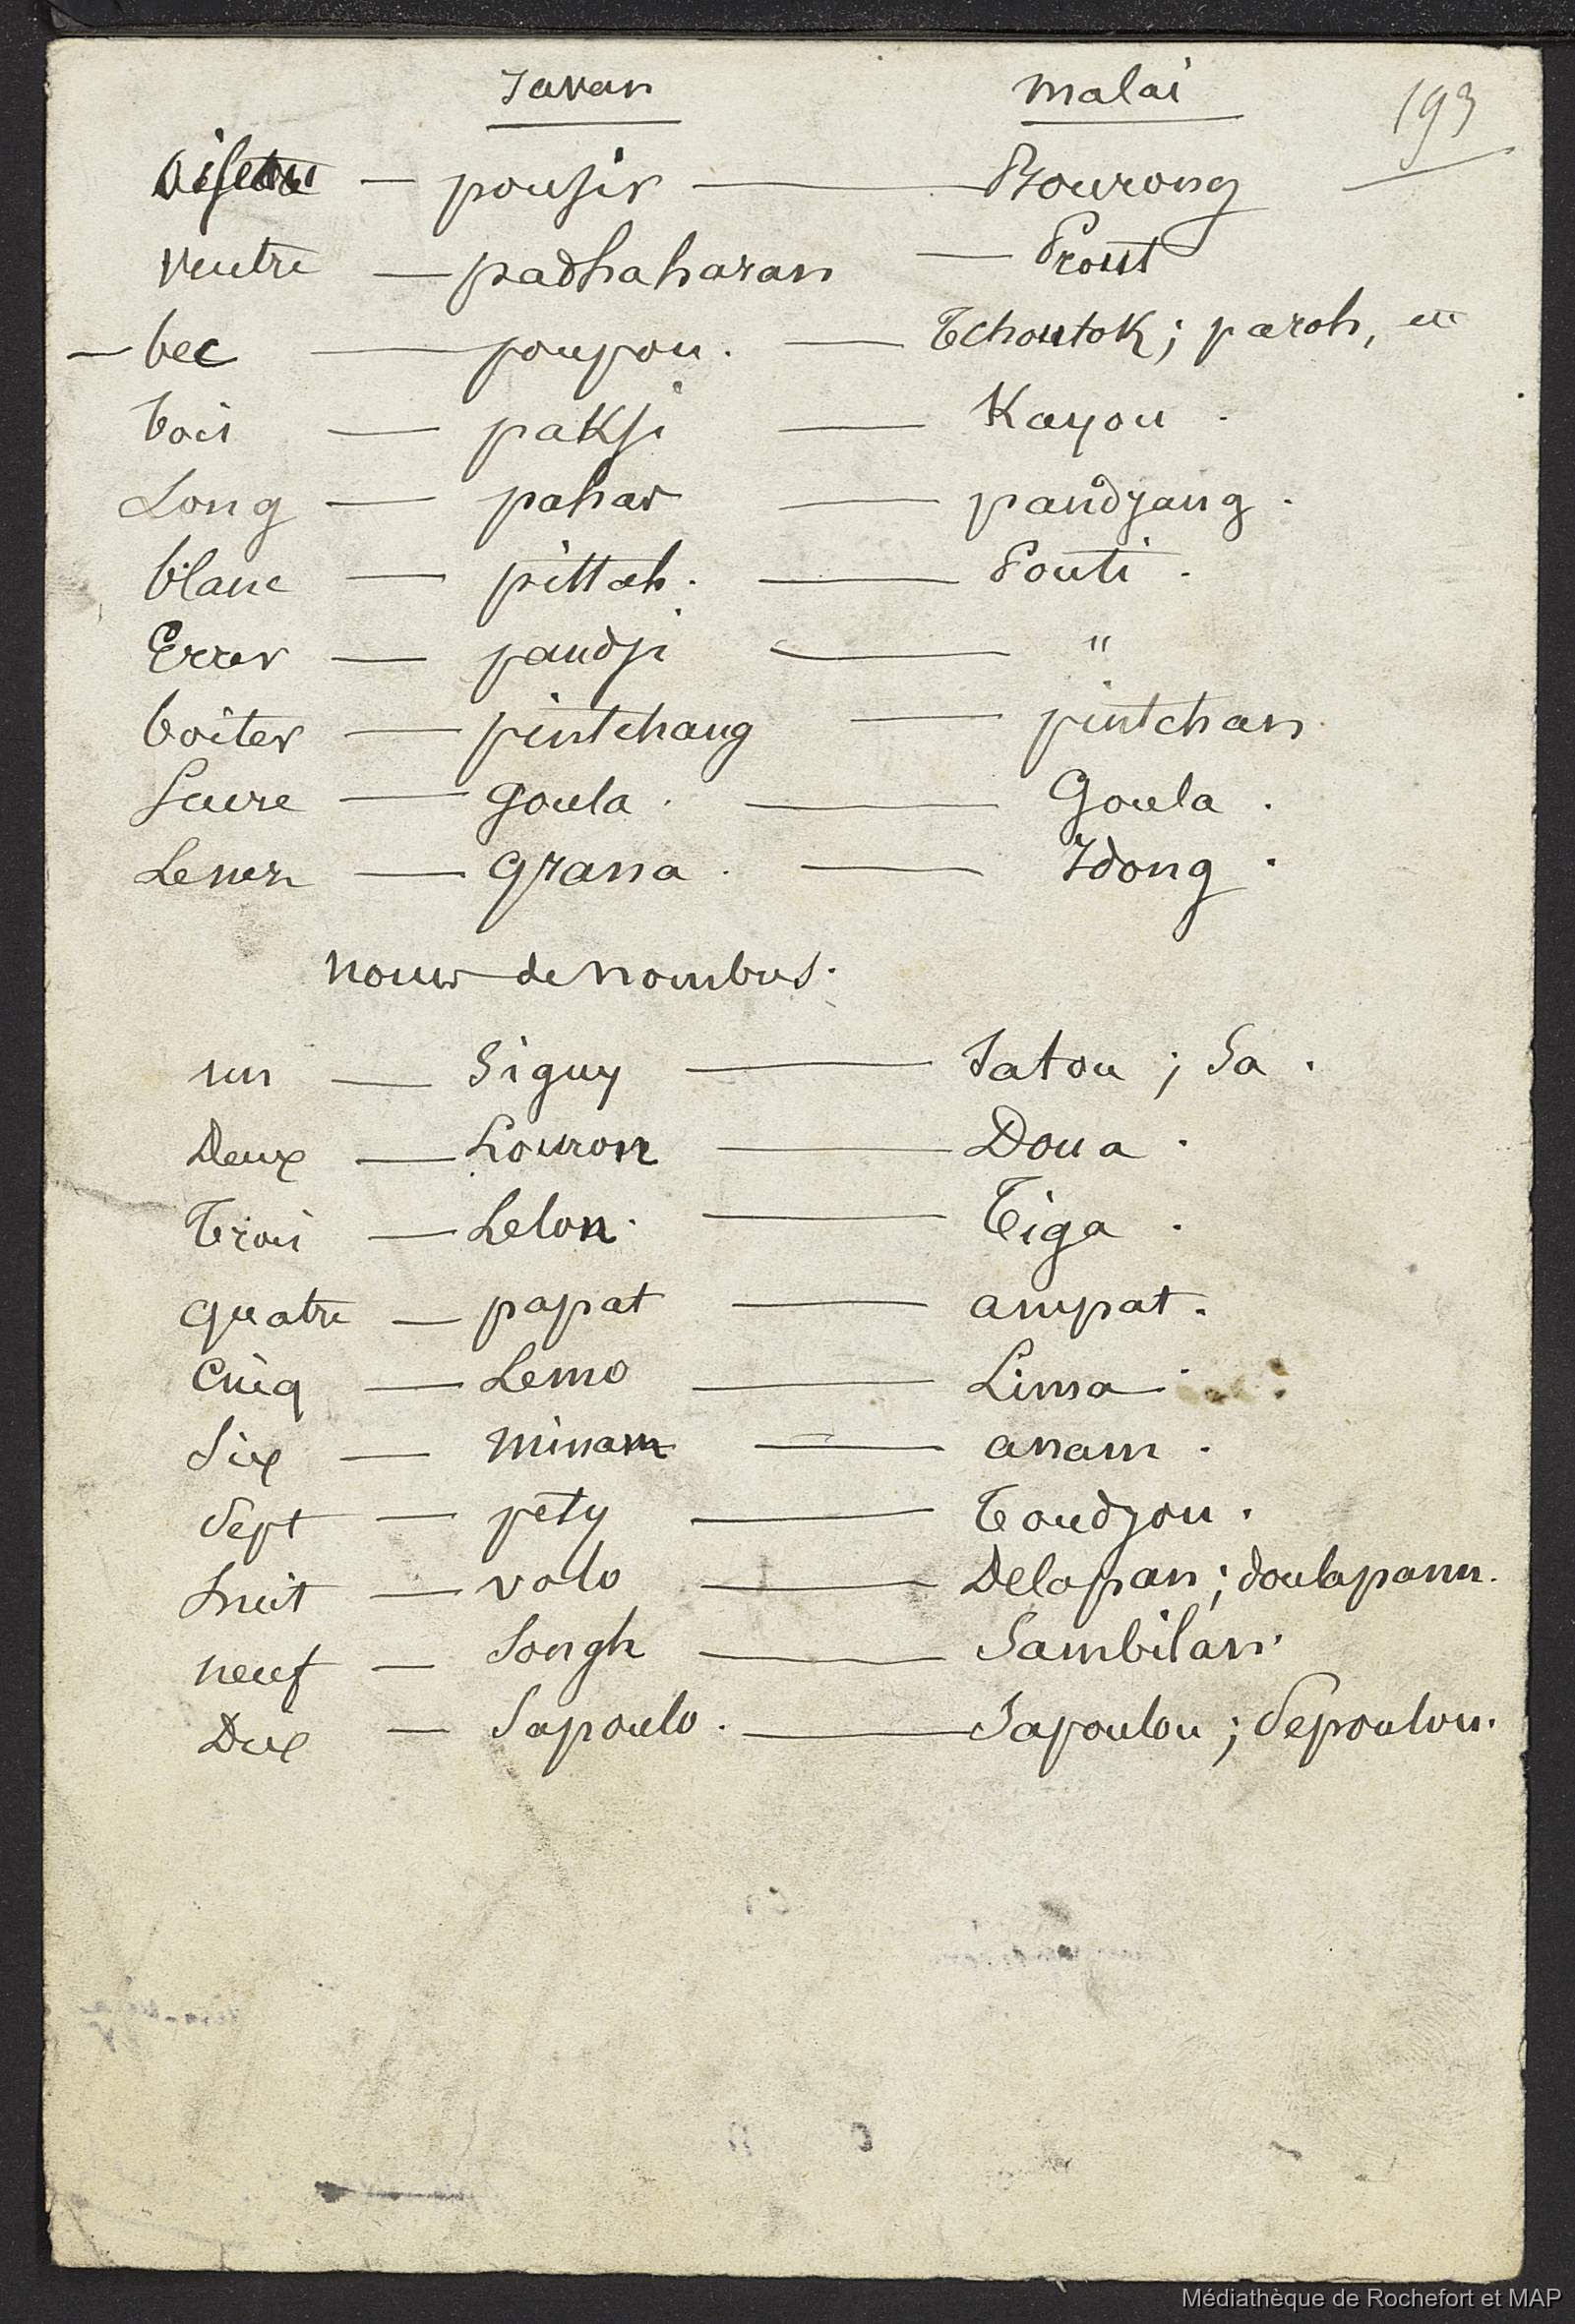 Javan malai 193
Oiseau — pousir — Bourong
Ventre — padhaharan — Prout
— bec — poupou. — Tchoutok; paroh, etc
bois — paksi — Kayou.
Long — pahar — pandjang.
blanc — pittah. — Pouti.
Errer — pandji — "
boiter — pintchang — pintchan
Sucre — Goula. — Goula.
Le nez — Grana. — Idong.
noms de nombres.
un — Siguy — Satou; Sa.
Deux — Louron — Doua.
Trois — Lelon. — Tiga.
quatre — papat — ampat.
Cinq — Lemo — Lima.
Six — minam — anam.
Sept — pety — Toudjou.
huit — volo — Delapan; doulapann.
neuf — Songh — Sambilan.
Dix — Sapoulo. — Sapoulou; Sepoulou.
Médiathèque de Rochefort et MAP